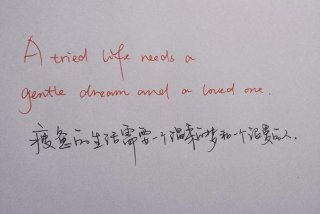 A tried life needs a
gentle dream and a loved one.
疲惫的生活需要一个温柔的梦和一个深爱的人.